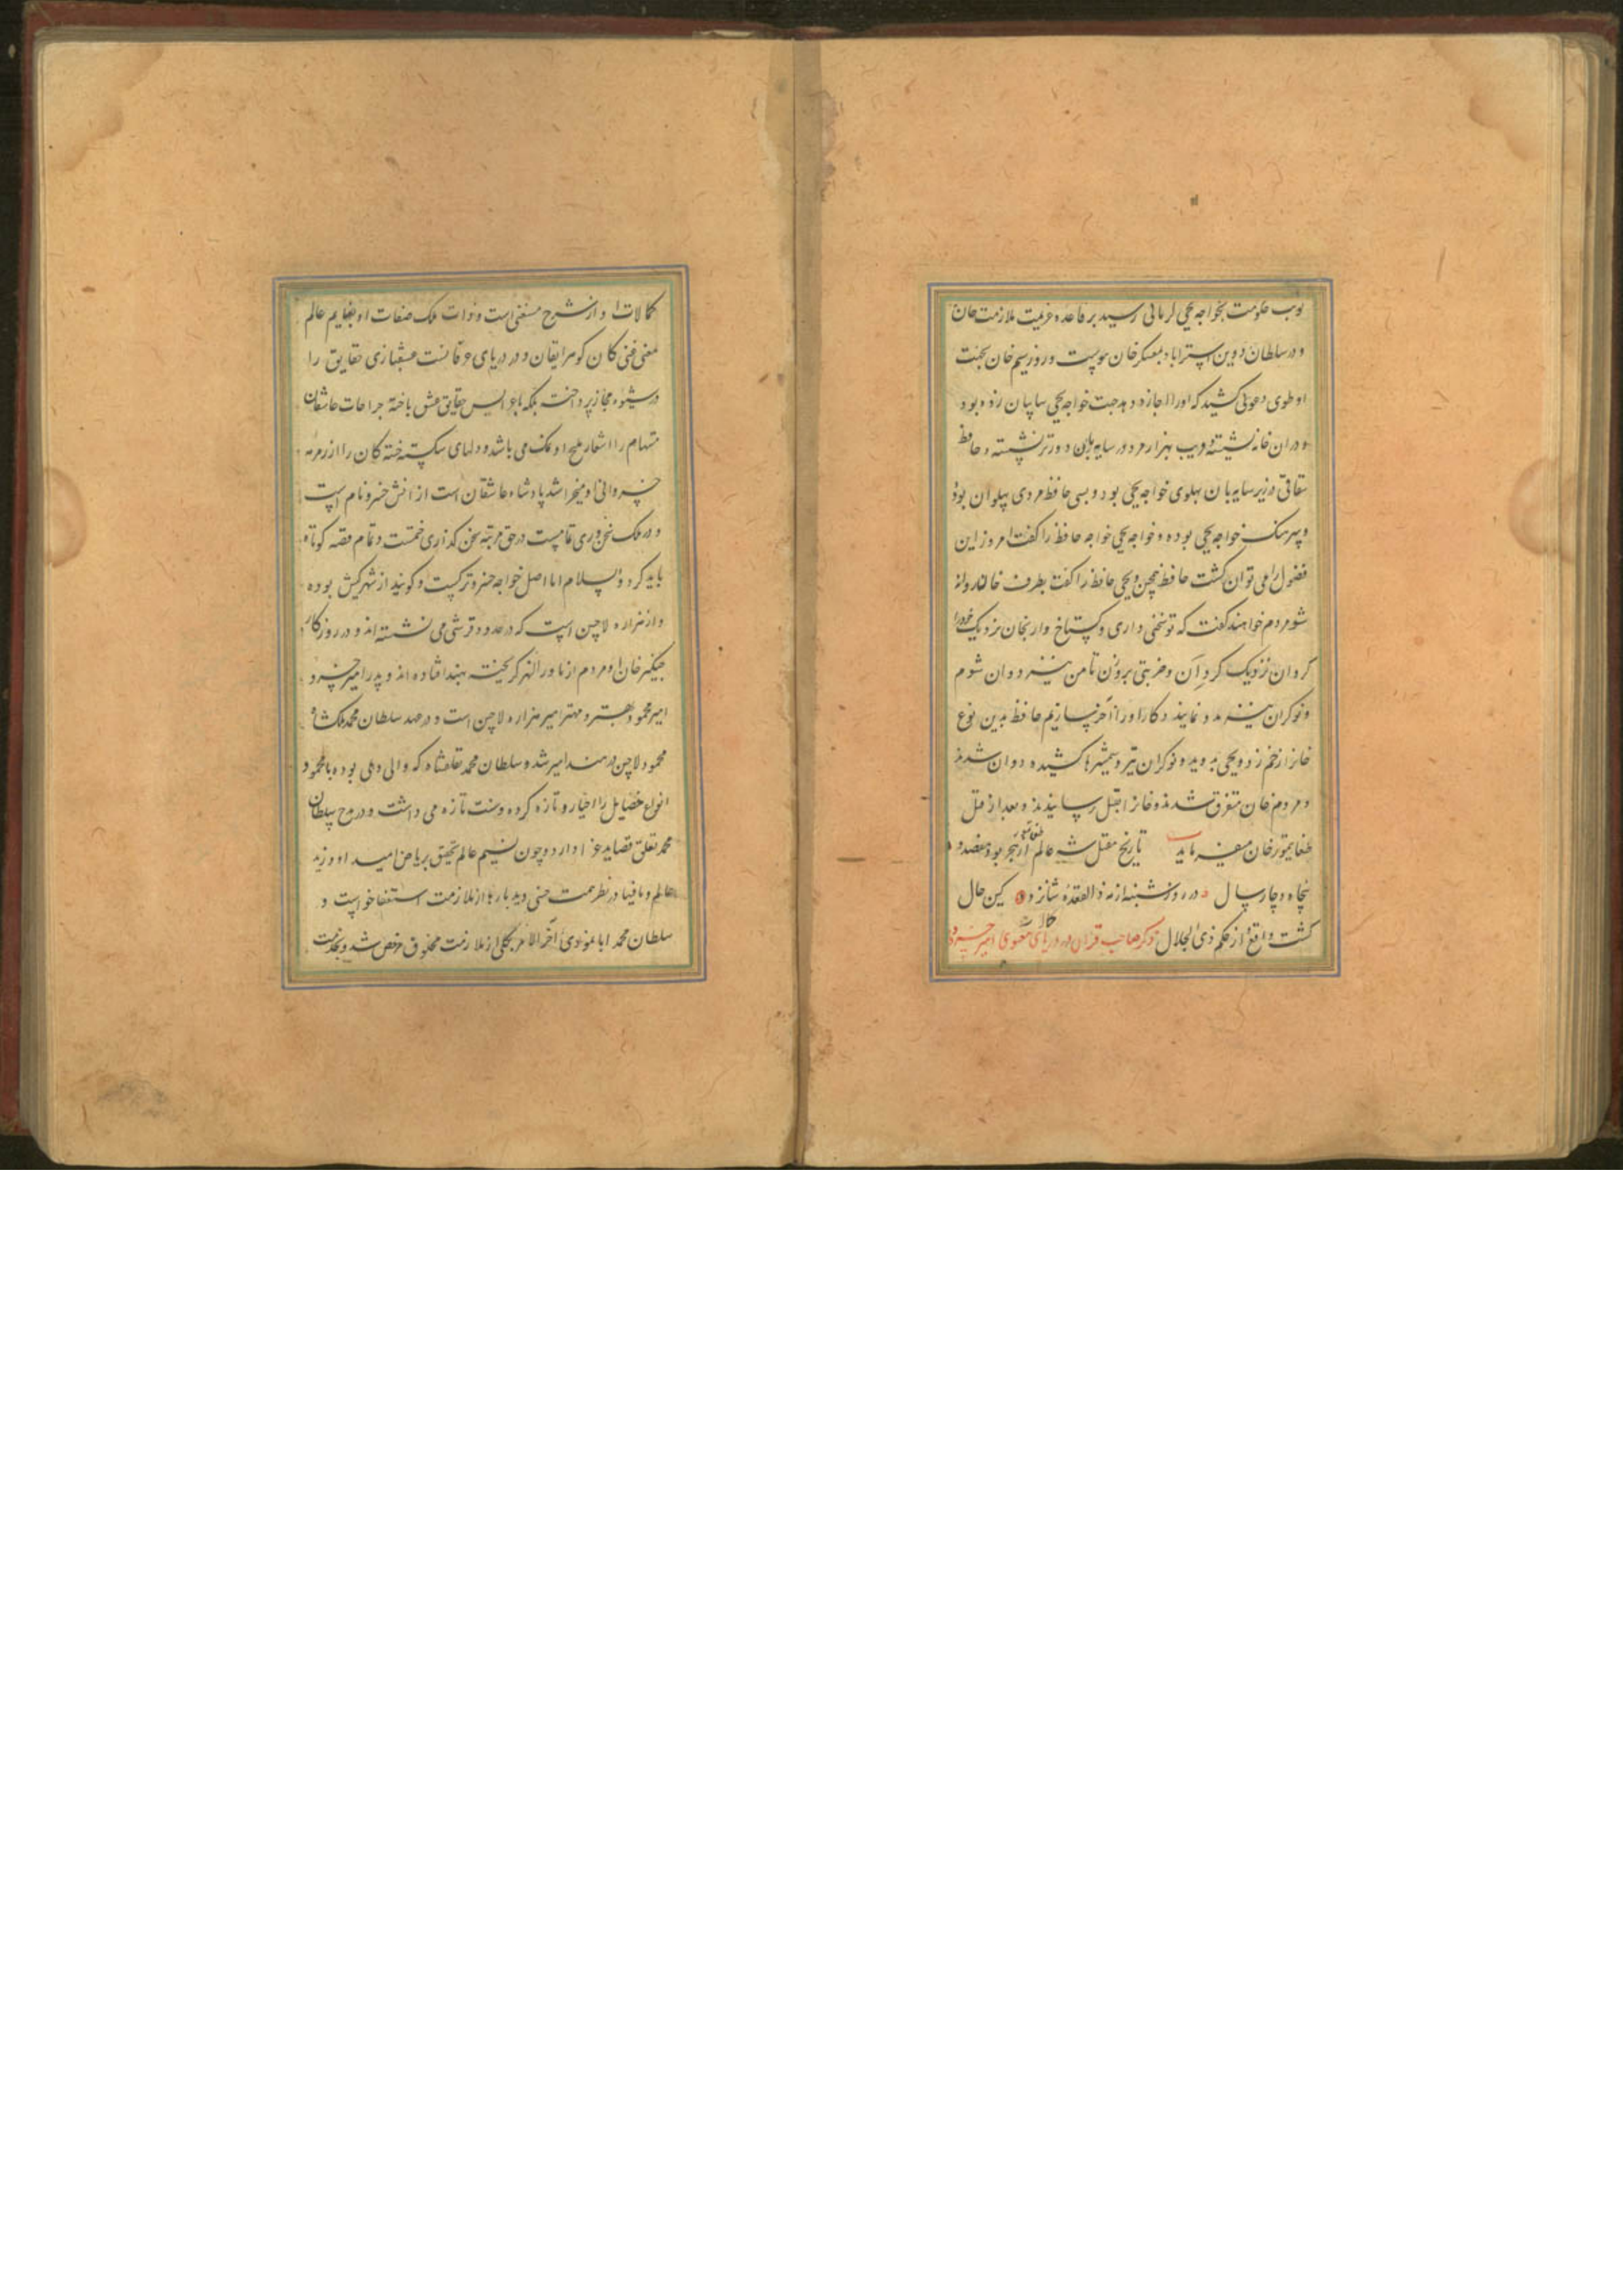 نوبت حکومت بخواجه یحیی کرمانی رسید بر قاعده عزیمت ملازمت خان
و در سلطان دوین استراباد بمعسکر خان پیوست و روز سیم خان بجهت
او طوی دعوتی کشید که او را اجازه دهد جهت خواجه یحیی سایبان زده بود
و در ان خانه نشسته قریب بهزار مرد در سایه بان دورتر نشسته و حافظ
شقانی در زیر سایه بان پهلوی خواجه یحیی بود و بسی حافظ مردی پهلوان بود
و سرهنگ خواجه یحیی بوده و خواجه یحیی خواجه حافظ را گفت امروز این
فضول را می توان کشت حافظ همچنین یحیی حافظ را گفت بطرف خان روانه
شو مردم خواهند گفت که تو سخنی داری و گستاخ وار بخان نزدیک خود را
کردان نزدیک کردان و ضربتی بر وزن تا من نیز دوان شوم
و نوکران نیز مدد نمایند و کار او را آخر سازیم حافظ بدین نوع
خانرا زخم زد و یحیی بدوید و نوکران تیر و شمشیرها کشیده دوان شدند
و مردم خان متفرق شدند و خانرا بقتل رسانیدند و بعد از قتل
طغا تیمور خان میفرماید تاریخ مقتل شه عالم طغا تمر از هجر بود هفصد و
پنجاه و چار سال در روز شنبه از مه ذالقعده شانزده کین حال
گشت واقع از حکم ذی الجلال ذکر صاحب قران در دریای معنوی امیر خسرو
کمالات او از شرح مستغنی است و ذات ملک صفات او بغنایم عالم
معنی غنی کان گوهر ایقان و در دریای عرفانست عشقبازی حقایق را
در شیوه مجاز پرداخت بلکه با عرایس حقایق عشق باخته جراحات عاشقان
مستهام را اشعار ملیح او نمک می باشد و دلهای شکسته خسته کان را از زمزمه
خسروانی او میخراشد پادشاه عاشقان است از انش خسرو نام است
و در ملک سخن وری تمامست در حق مرتبه سخن گذاری ختمست و تمام قصه کوتاه
باید کرد و السلام اما اصل خواجه خسرو ترکست و گویند از شهر کش بوده
و از هزاره لاچین است که در حدود قرشی می نشسته اند و در روزگار
چنگیز خان او مردم از ماورا النهر گریخته بهند افتاده اند و پدر امیر خسرو
امیر محمود بهتر و مهتر امیر هزاره لاچین است و در عهد سلطان محمد ملک شاه
محمود لاچین در هند امیر شد و سلطان محمد تغلقشاه که والی دهلی بوده با محمود
انواع خصایل را احیا و تازه کرده و سنت تازه می داشت و در مدح سلطان
محمد تغلق قصاید غرا دارد و چون نسیم عالم تحقیق بریاض امید او وزید
عالم و مافیها در نظر همت خسی دید بارها از ملازمت استعفا خواست و
سلطان محمد ابا نمودی آخر الامر بکلی از ملازمت مخلوق مرخص شد و بخدمت